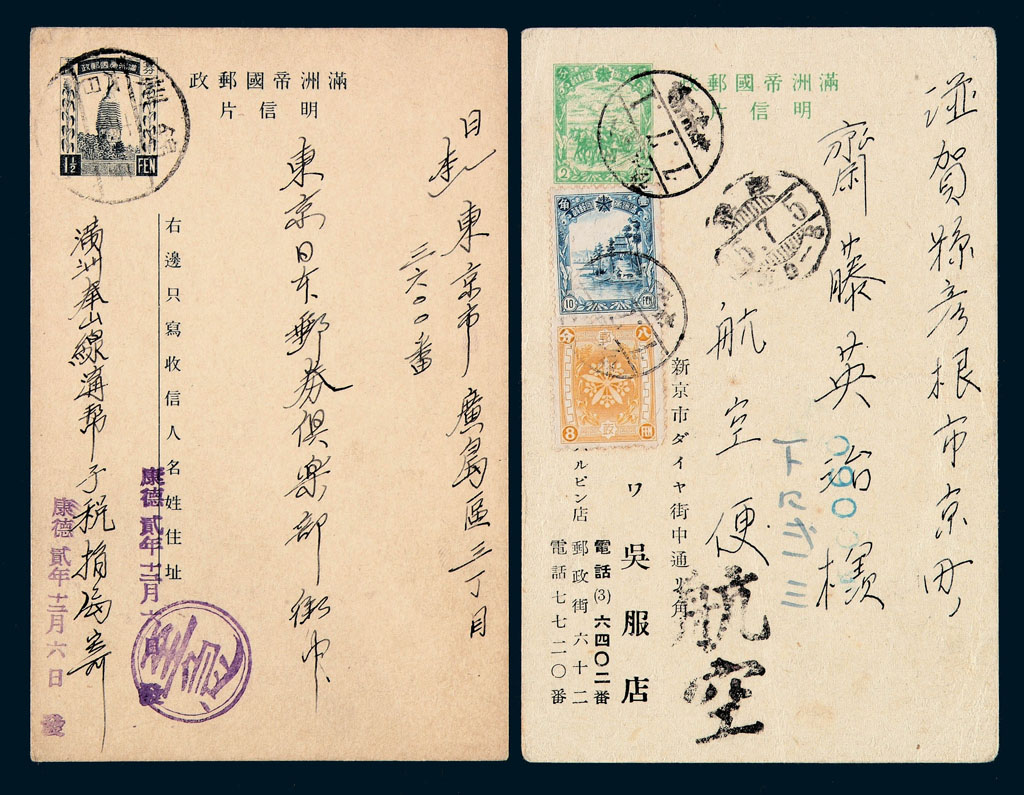 政郵國帝洲滿
片信明
1½ FEN
日本
東京市廣島區三丁目
三六〇〇番
東京日本郵券俱楽部 御中
右邊只寫收信人名姓住址
滿州奉山線溝幇子税捐局寄
康德貳年十二月六日
康德貳年十二月六日
政郵國帝洲滿
片信明
2
10 FEN
八分
8 FEN
滋賀縣彦根市京町
齋藤英治様
航空便
航空
新京市ダイヤ街中通
角
ワ吳服店
電話(3)六四〇二番
ルビン店
郵政街六十二
電話七七二〇番